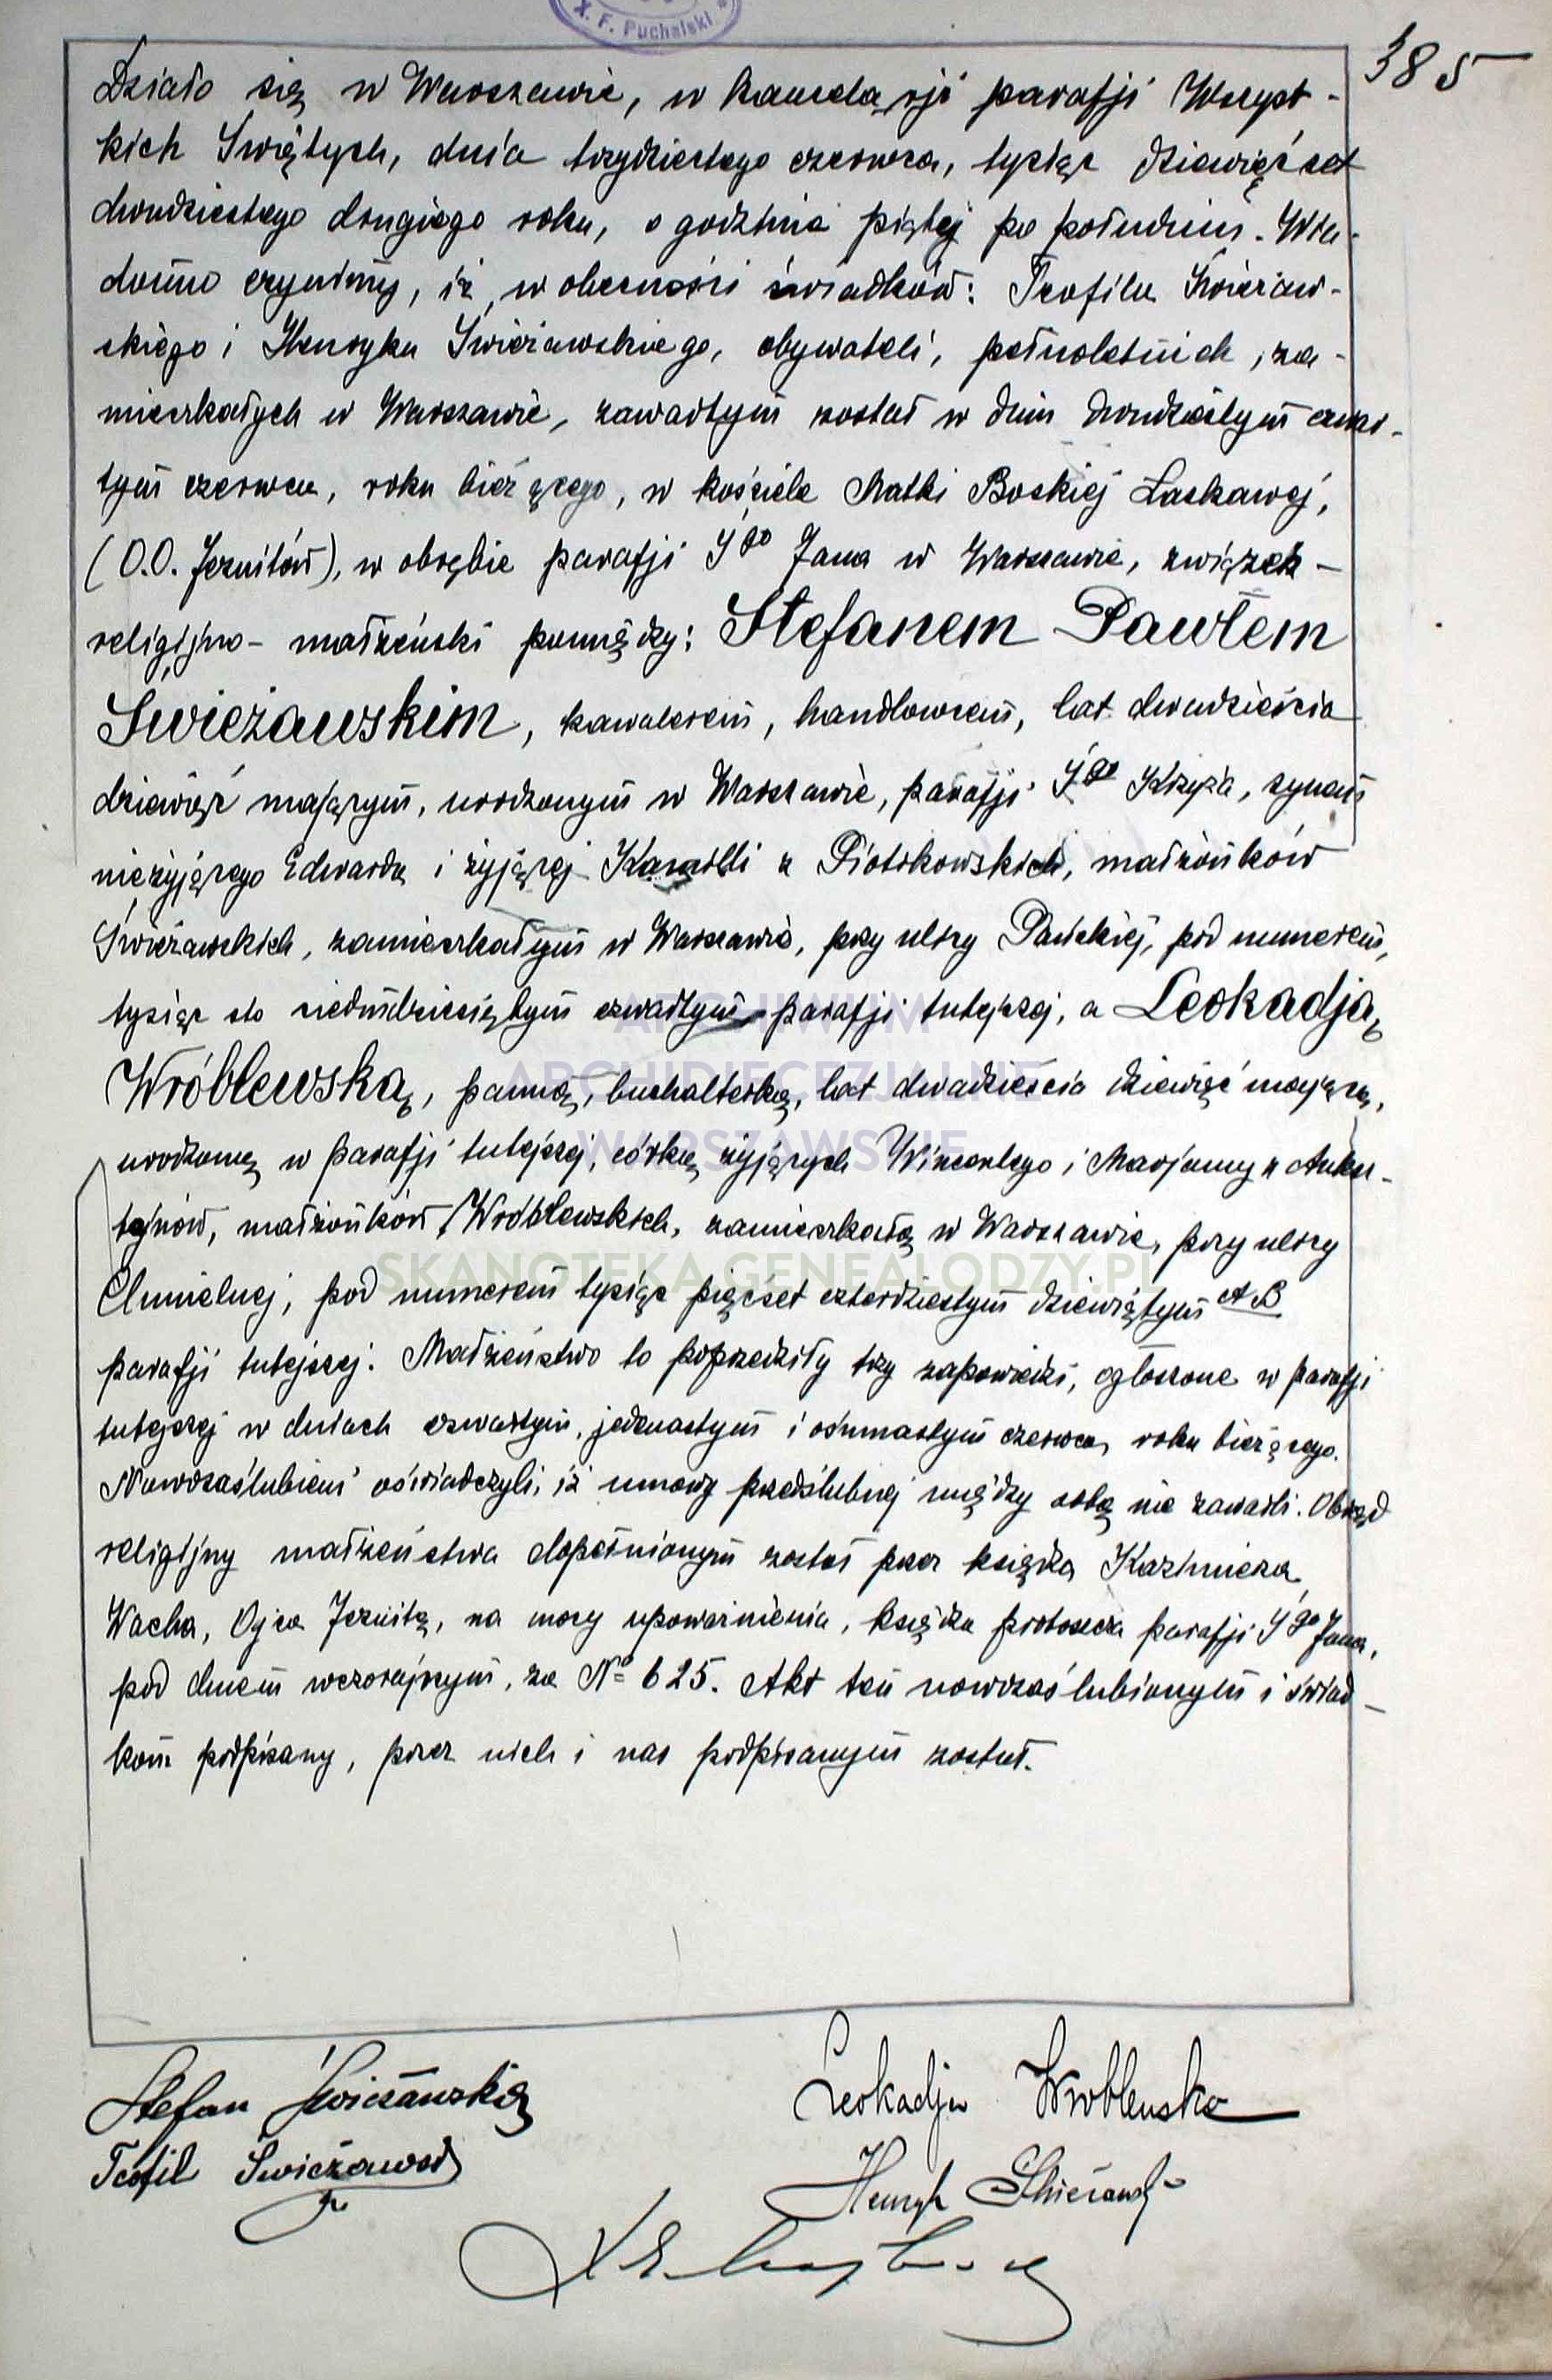 X. F. Puchalski
385
Działo się w Warszawie, w kancelarji parafji Wszyst-
kich Świętych, dnia trzydziestego czerwca, tysiąc dziewięćset
dwudziestego drugiego roku, o godzinie piątej po południu. Wia-
domo czynimy, iż w obecności świadków: Teofila Świeżaw-
skiego i Henryka Świeżawskiego, obywateli, pełnoletnich, za-
mieszkałych w Warszawie, zawartym został w dniu dwudziestym czwar-
tym czerwca, roku bieżącego, w kościele Matki Boskiej Łaskawej,
(O.O. Jezuitów), w obrębie parafji Śgo Jana w Warszawie, związek-
religijno-małżeński pomiędzy: Stefanem Pawłem
Świeżawskim, kawalerem, handlowcem, lat dwadzieścia
dziewięć mającym, urodzonym w Warszawie, parafji Śgo Krzyża, synem
nieżyjącego Edwarda i żyjącej Kamilli z Piotrkowskich, małżonków
Świeżawskich, zamieszkałym w Warszawie, przy ulicy Pańskiej, pod numerem,
tysiąc sto siedmdziesiątym czwartym, parafji tutejszej, a Leokadją
Wróblewską, panną, buchalterką, lat dwadzieścia dziewięć mającą,
urodzoną w parafji tutejszej, córką żyjących Wincentego i Marjanny z
tejnów, małżonków Wróblewskich, zamieszkałą w Warszawie, przy ulicy
Chmielnej, pod numerem tysiąc pięćset czterdziestym dziewiątym AB
parafji tutejszej. Małżeństwo to poprzedziły trzy zapowiedzi, ogłoszone w parafji
tutejszej w dniach czwartym, jedenastym i ośmnastym czerwca, roku bieżącego.
Nowozaślubieni oświadczyli, iż umowy przedślubnej między sobą nie zawarli. Obrząd
religijny małżeństwa dopełnionym został przez księdza Kazimierza
Wacha, Ojca Jezuitę, na mocy upoważnienia, księdza proboszcza parafji Śgo Jana,
pod dniem wczorajszym, za № 625. Akt ten nowozaślubionym i świad-
kom podpisany, przez nich i nas podpisanym został.
Stefan Świeżawski
Leokadja Wróblewska
Teofil Świeżawski
Henryk Świeżawski
ARCHIWUM
ARCHIDIECEZJALNE
WARSZAWSKIE
SKANOTEKA.GENEALODZY.PL